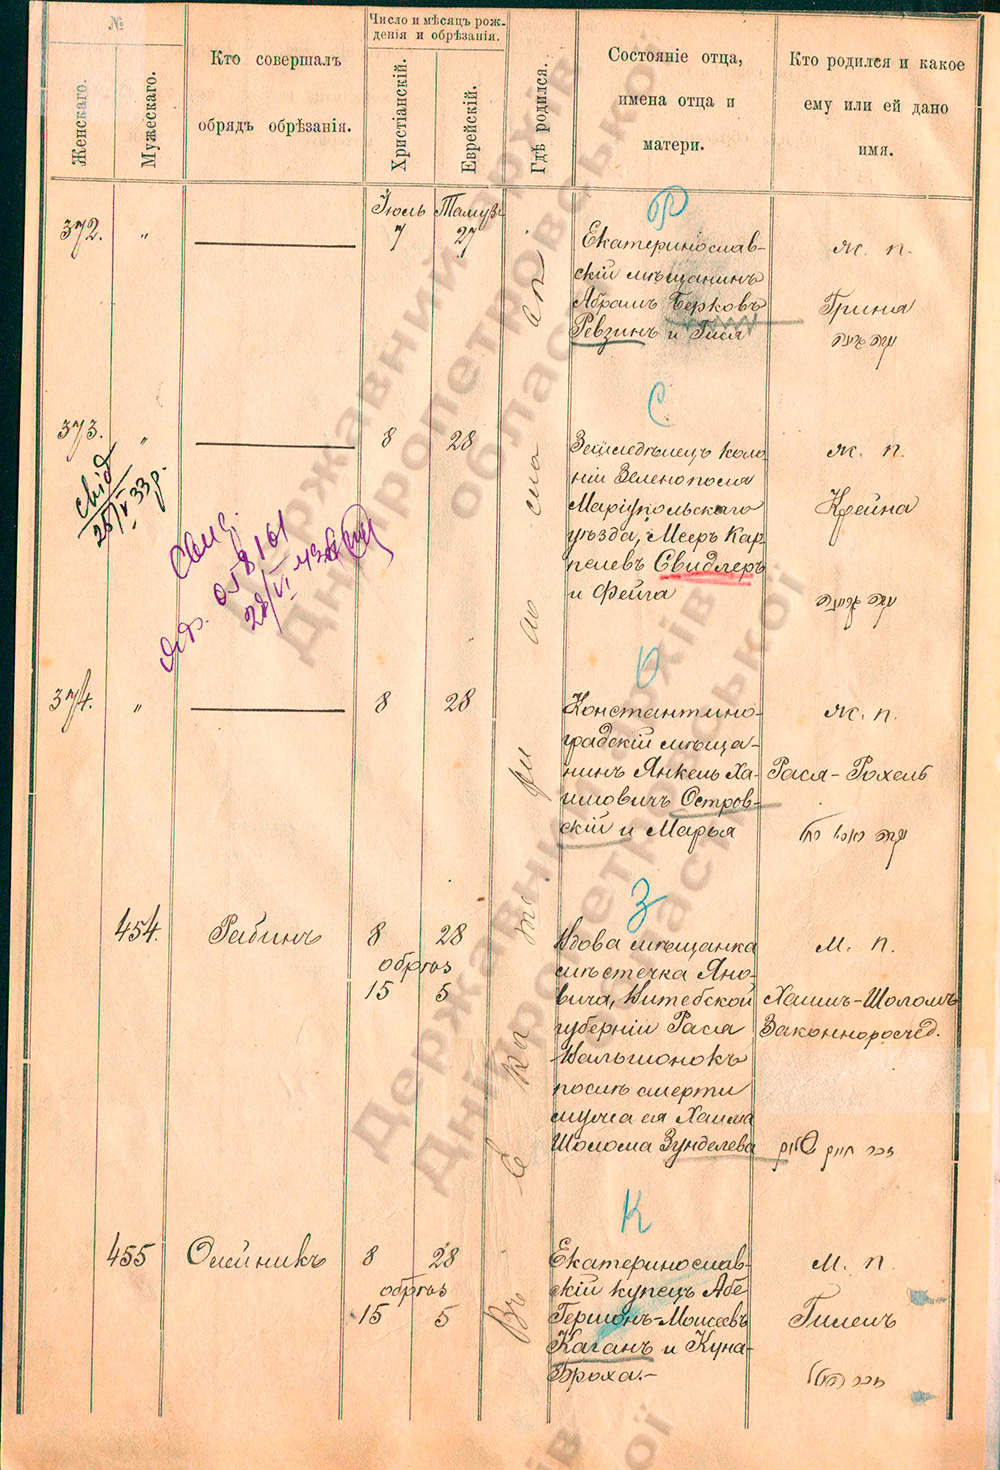 №
Женскаго.
Мужескаго.
Кто совершалъ
обрядъ обрѣзанія.
Число и мѣсяцъ рож-
денія и обрѣзанія.
Христіанскій.
Еврейскій.
Гдѣ родился.
Состояніе отца,
имена отца и
матери.
Кто родился и какое
ему или ей дано
имя.
Въ Екатеринославѣ
Р
372. „ Іюль 7 Тамузъ 27
Екатеринослав-
скій мѣщанинъ
Абрамъ Берковъ
Ревзинъ и Гися
ж. п.
Грина
С
373. „ 8 28
свід
25/V 33 р.
058161
Земледѣлецъ коло
ніи Зеленополя
Маріупольскаго
уѣзда, Мееръ Кар
пелевъ Свидлеръ
и Фейга
ж. п.
Крейна
О
374. „ 8 28
Константино-
градскій мѣща-
нинъ Янкель Ха-
имовичъ Остров-
скій и Марья
ж. п.
Рася-Рохель
З
454. Рабинъ 8 28
обрѣз
15 5
Вдова мѣщанка
мѣстечка Яно-
вича, Витебской
губерніи Рася
послѣ смерти
мужа ея Хаима
Шолома Зунделева
м. п.
Хаимъ-Шоломъ
К
455 Олейникъ 8 28
обрѣз
15 5
Екатеринослав-
скій купецъ Абе
Гершонъ-Моисеевъ
Каганъ и Куна-
Броха.-
м. п.
Гилелъ
Державний архів
Дніпропетровської
області